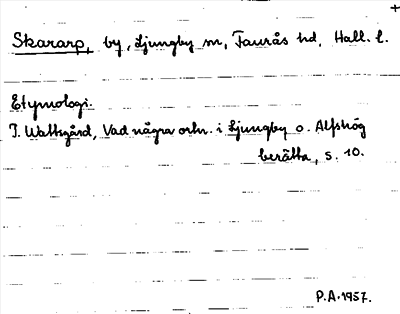 Skararp, by, Ljungby sn, Faurås hd, Hall. l.
Etymologi.
J. Wattsgård, Vad några ortn. i Ljungby o. Alfshög
berätta, s. 10.
P.A. 1957.